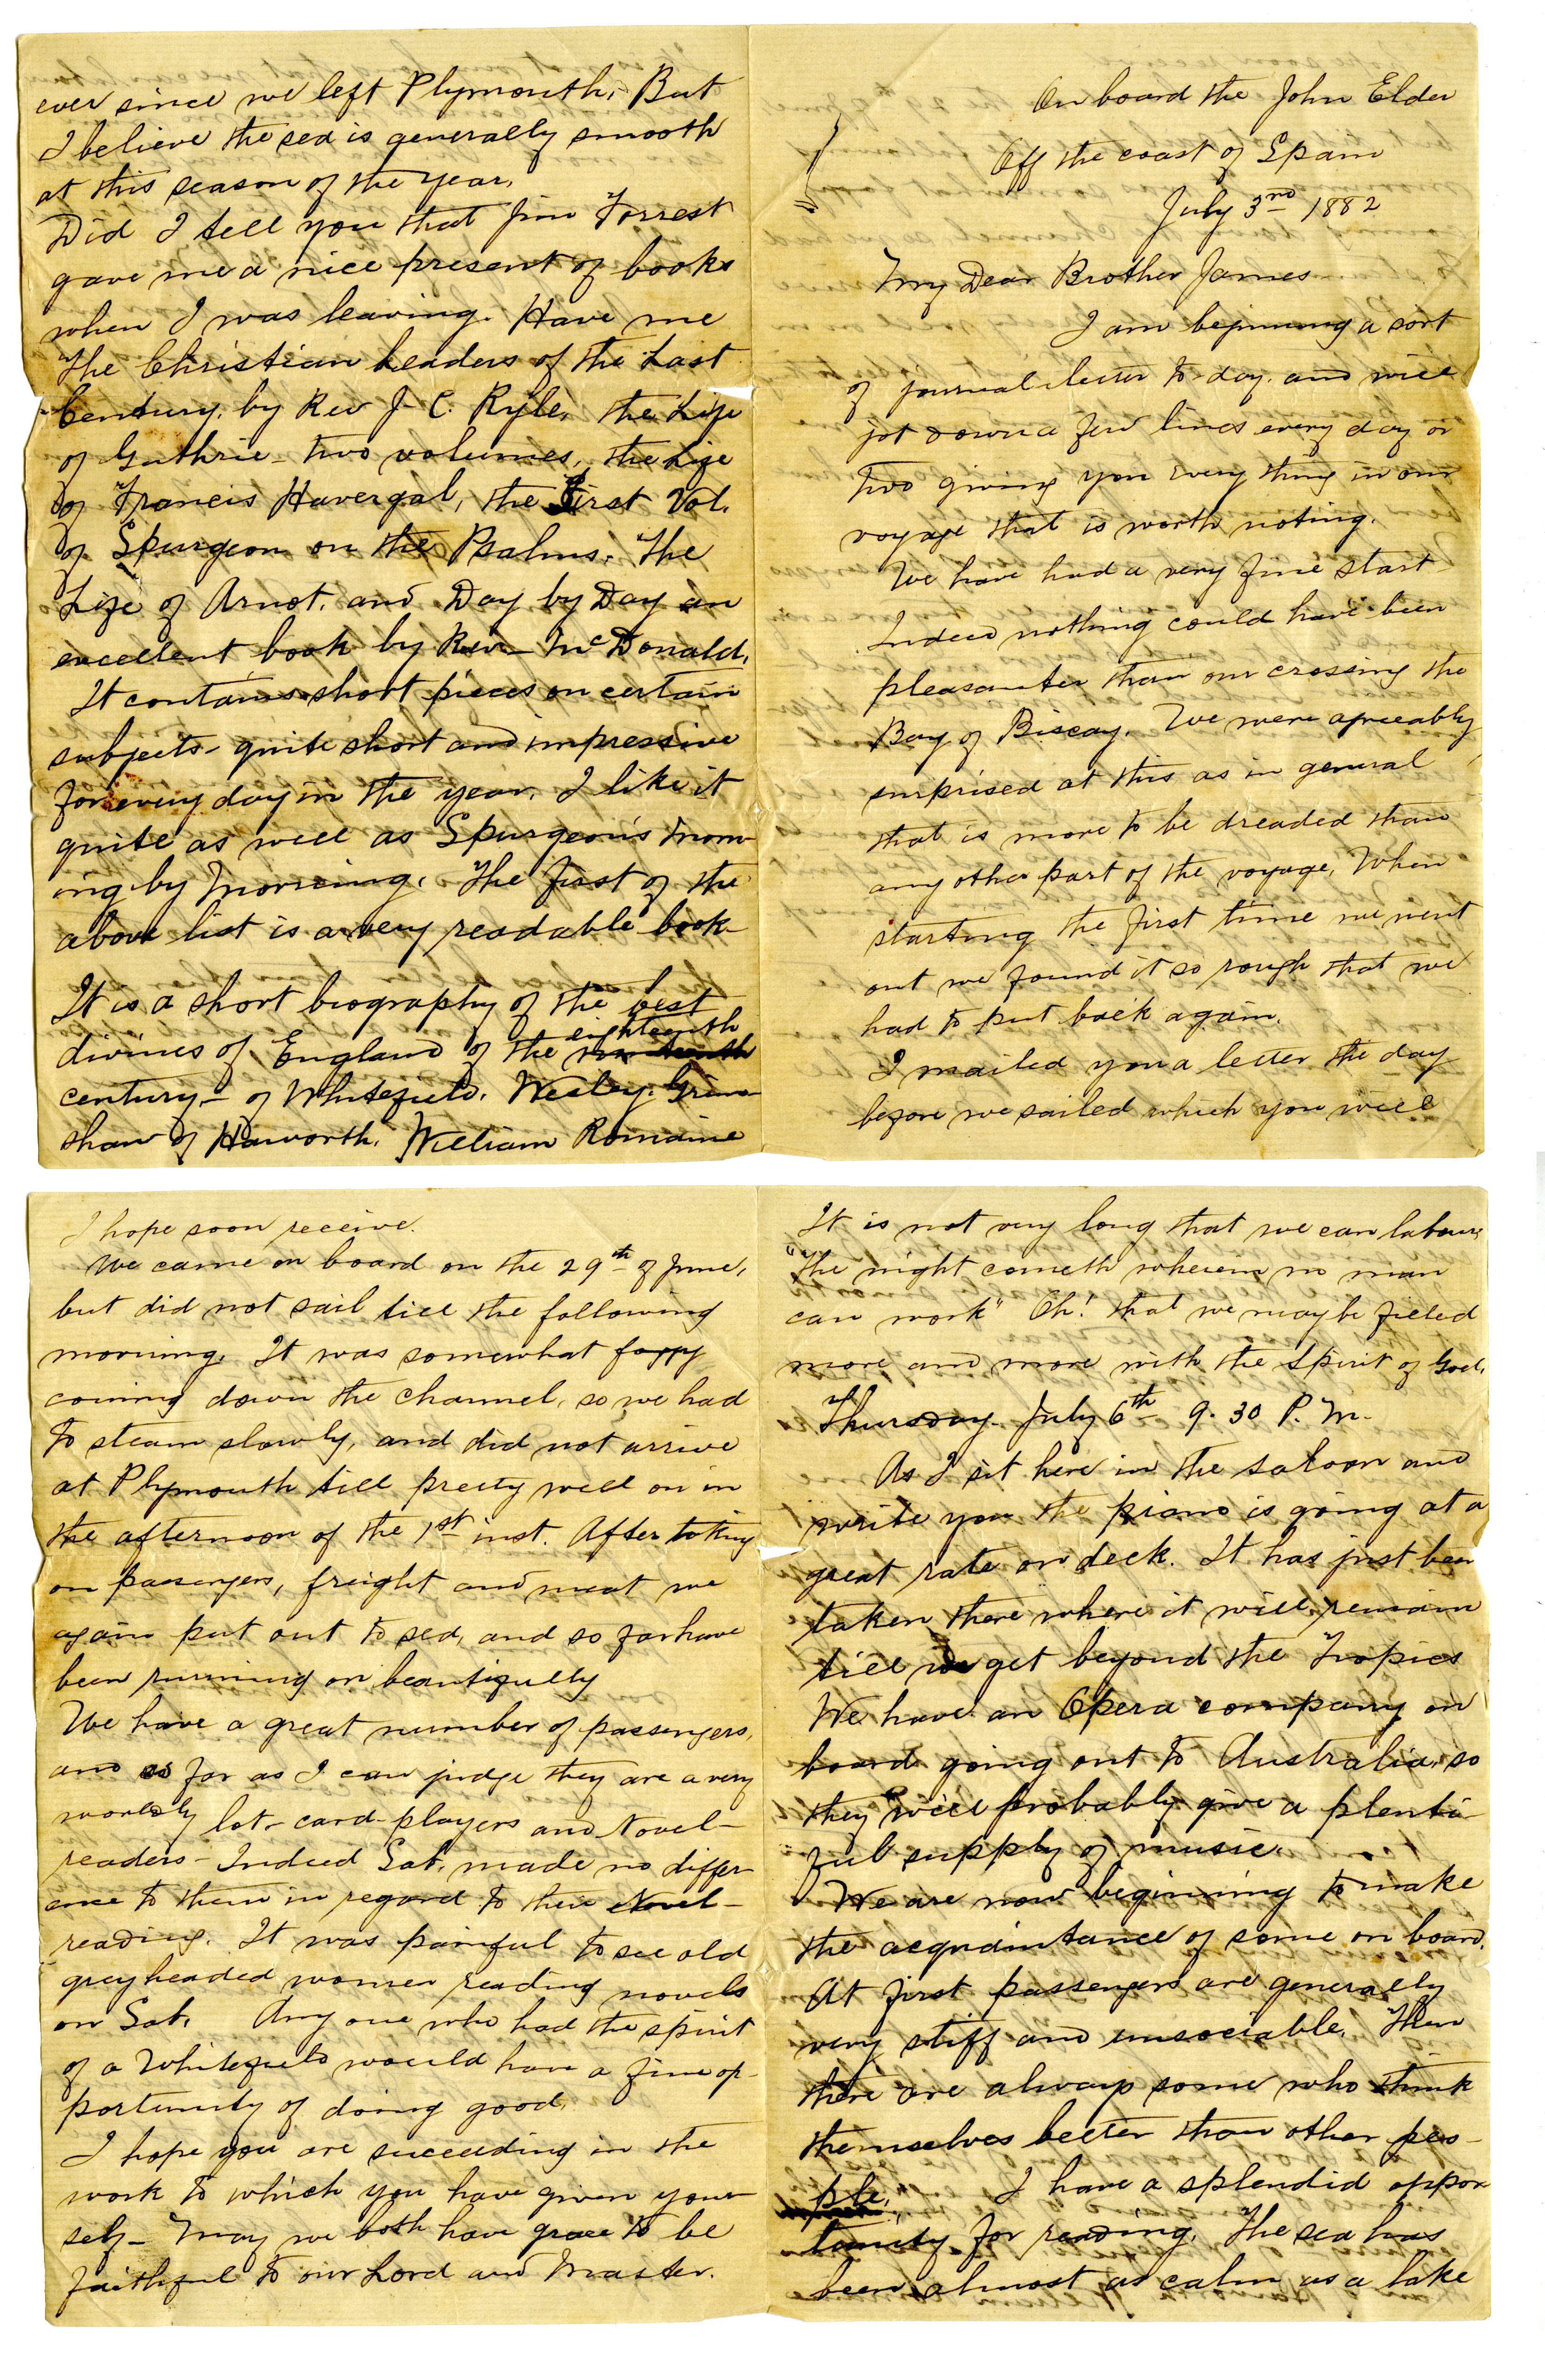 On board the John Elder
Off the coast of Spain
July 3rd 1882
My Dear Brother James
I am beginning a sort
of journal letter to-day and will
jot down a few lines every day or
two giving you every thing in our
voyage that is worth noting.
We have had a very fine start
Indeed nothing could have been
pleasanter than our crossing the
Bay of Biscay. We were agreeably
surprised at this as in general
that is more to be dreaded than
any other part of the voyage. When
starting the first time we went
out we found it so rough that we
had to put back again.
I mailed you a letter the day
before we sailed which you will
I hope soon receive.
We came on board on the 29th of June,
but did not sail till the following
morning. It was somewhat foggy
coming down the channel, so we had
to steam slowly, and did not arrive
at Plymouth till pretty well on in
the afternoon of the 1st inst. After taking
on passengers, freight and meat we
again put out to sea, and so far have
been running on beautifully
We have a great number of passengers,
and as far as I can judge they are a very
worldly lot - card-players and Novel-
readers - Indeed Sab. made no differ-
ence to them in regard to their Novel-
reading. It was painful to see old
greyheaded women reading novels
on Sab. Any one who had the spirit
of a Whitefield would have a fine op-
portunity of doing good.
I hope you are succeeding in the
work to which you have given your-
self - May we both have grace to be
faithful to our Lord and Master.
It is not very long that we can labour,
"The night cometh wherein no man
can work" Oh! that we may be filled
more and more with the Spirit of God.
Thursday July 6th 9.30 P.M.
As I sit here in the saloon and
write you the piano is going at a
great rate on deck. It has just been
taken there where it will remain
till we get beyond the Tropics
We have an Opera company on
board going out to Australia, so
they will probably give a plenti-
ful supply of music.
We are now beginning to make
the acquaintance of some on board.
At first passengers are generally
very stiff and unsociable. Then
there are always some who think
themselves better than other peo-
ple. I have a splendid oppor
tunity for reading. The sea has
been almost as calm as a lake
ever since we left Plymouth. But
I believe the sea is generally smooth
at this season of the year.
Did I tell you that Jim Forrest
gave me a nice present of books
when I was leaving. Have me
The Christian Leaders of the Last
Century, by Rev J. C. Ryle, the Life
of Guthrie - two volumes, the Life
of Francis Havergal, the First Vol.
of Spurgeon on the Psalms. The
Life of Arnot, and Day by Day an
excellent book by Rev- McDonald.
It contains short pieces on certain
subjects - quite short and impressive
for every day in the year. I like it
quite as well as Spurgeon's Morn-
ing by Morning. The first of the
above list is a very readable book-
It is a short biography of the best
divines of England of the eighteenth
century - of Whitefield, Wesley, Grim-
shaw of Haworth, William Romaine